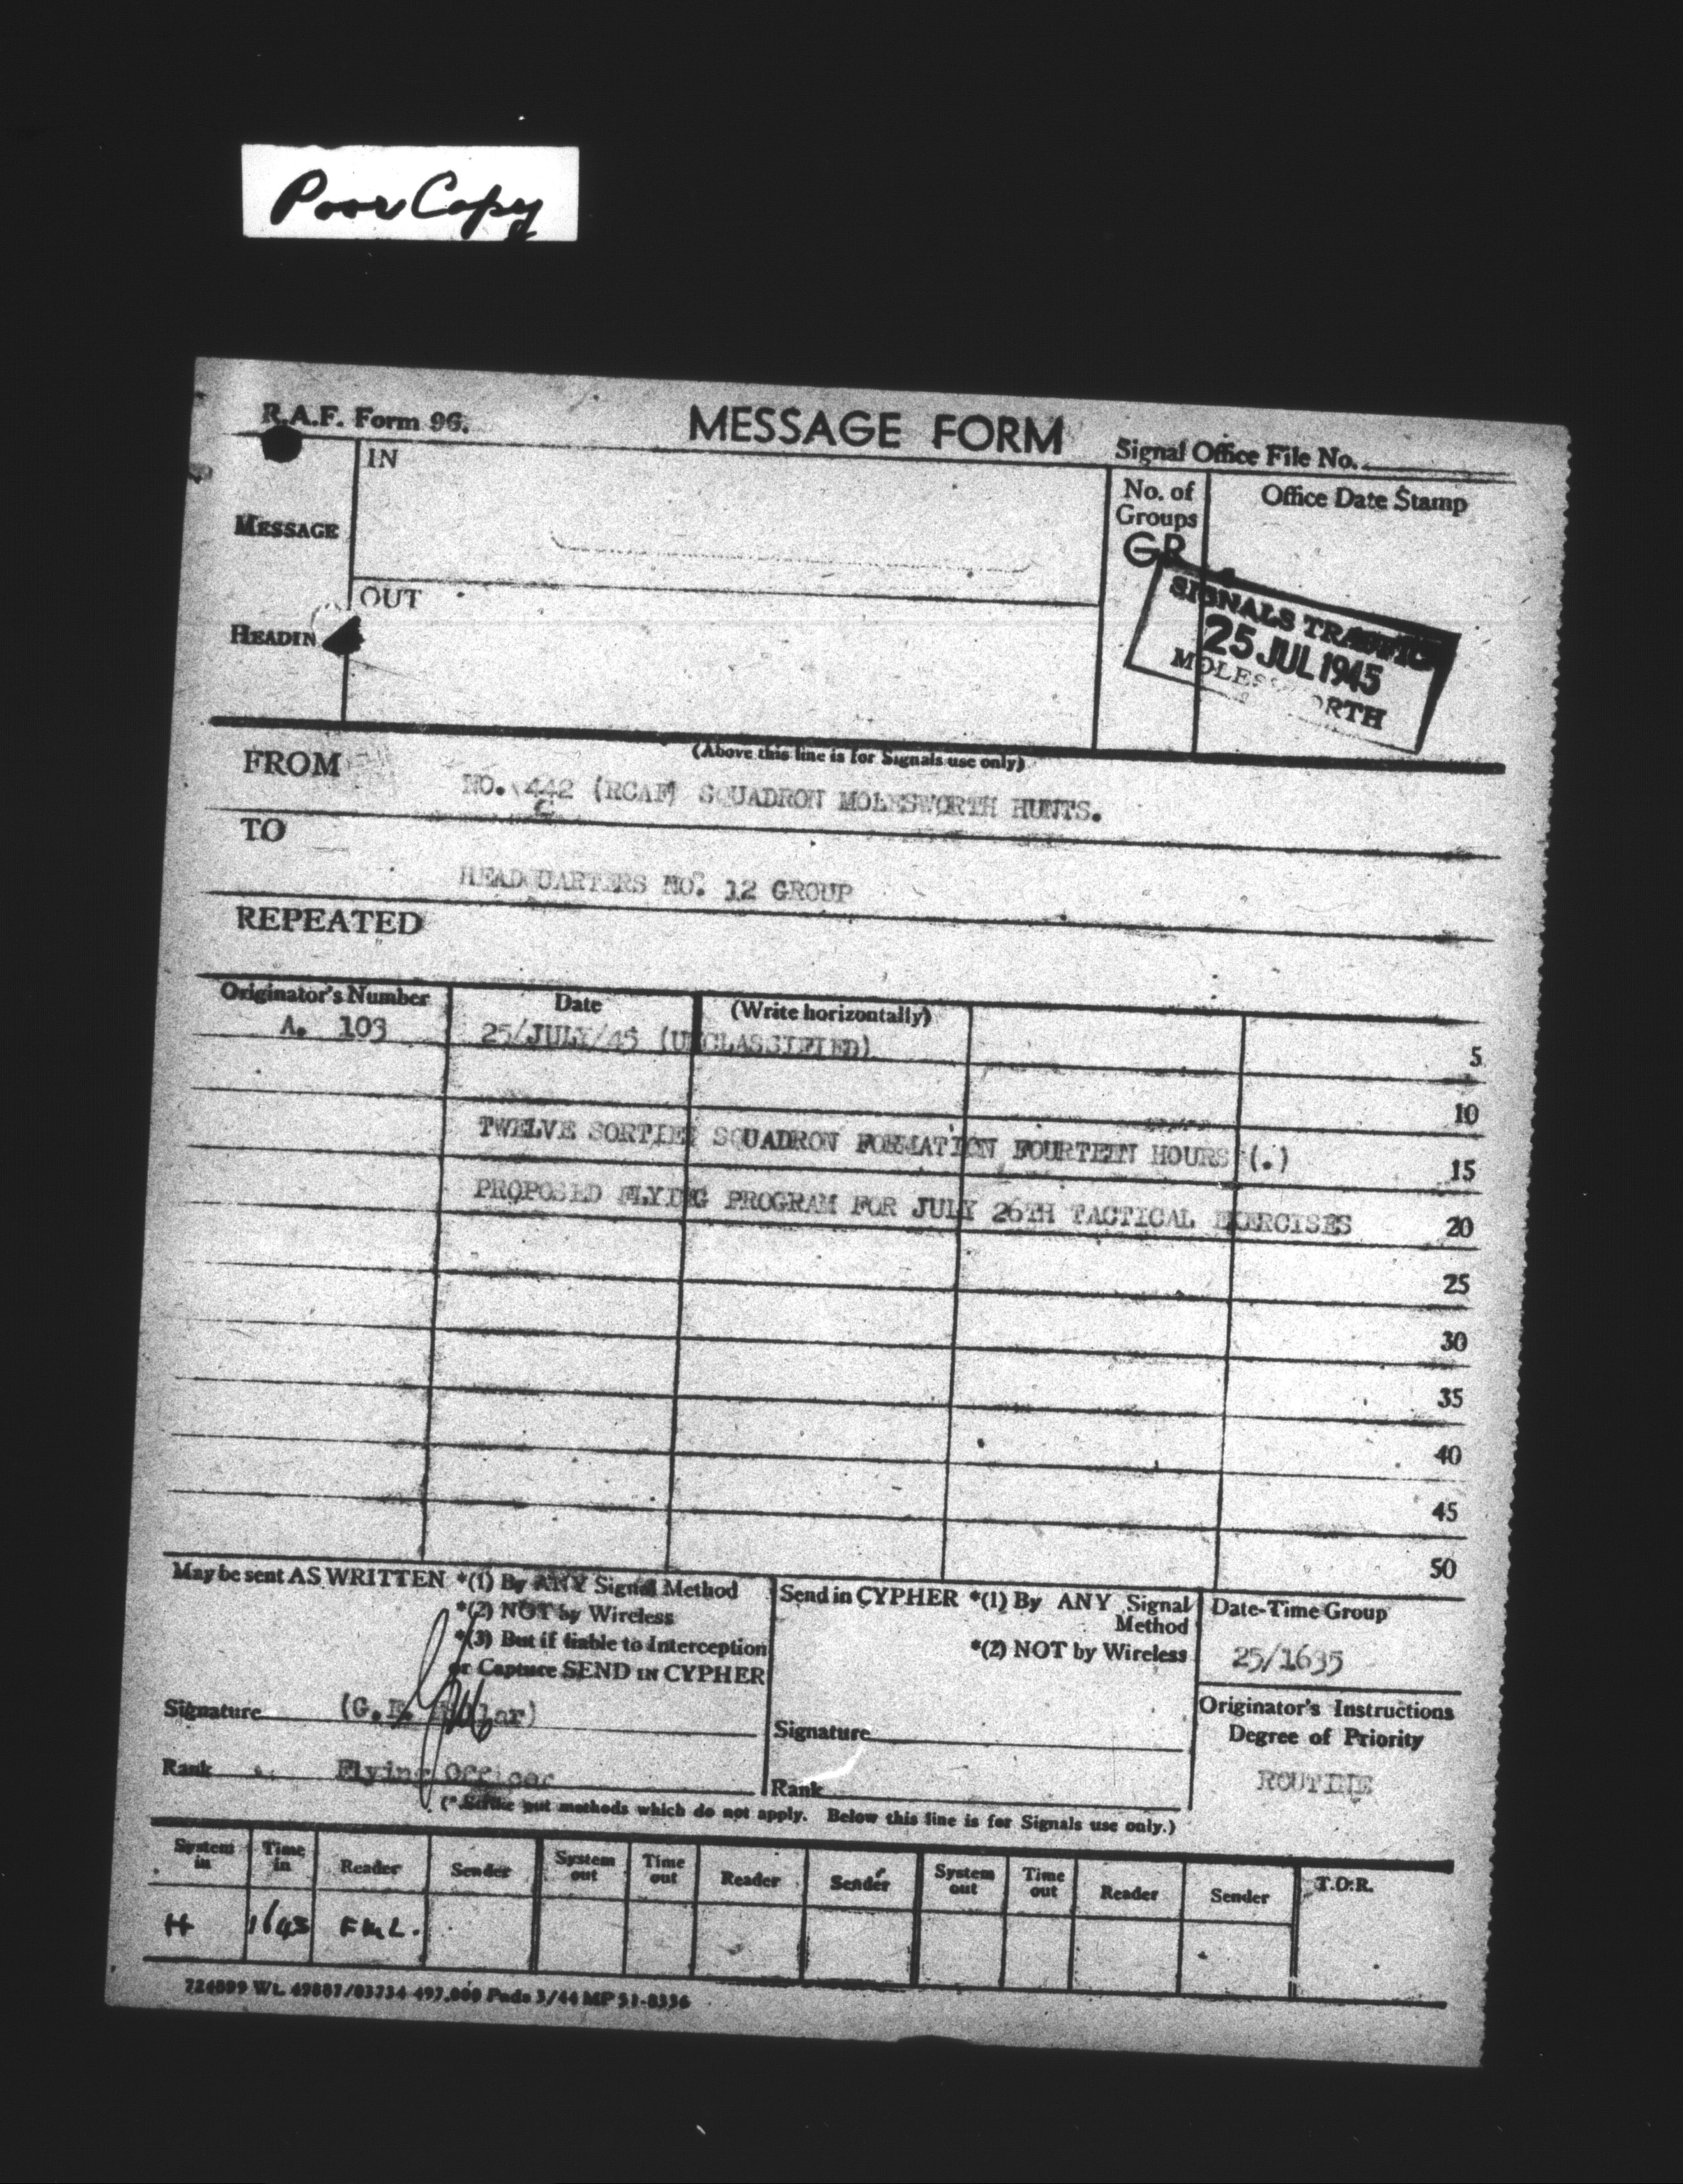 Poor Copy
R.A.F. Form 96.
MESSAGE FORM
Signal Office File No.
IN
No. of
Groups
GR
Office Date Stamp
MESSAGE
SIGNALS TRAFFIC
25 JUL 1945
MOLESWORTH
OUT
HEADIN
(Above this line is for Signals use only)
FROM
NO. 442 (RCAF) SQUADRON MOLESWORTH HUNTS.
TO
HEADQUARTERS NO. 12 GROUP
REPEATED
Originator's Number Date (Write horizontally)
A. 103 25/JULY/45 (UNCLASSIFIED) 5
10
TWELVE SORTIES SQUADRON FORMATION FOURTEEN HOURS (.) 15
PROPOSED FLYING PROGRAM FOR JULY 26TH TACTICAL EXERCISES 20
25
30
35
40
45
50
May be sent AS WRITTEN *(1) By ANY Signal Method
*(2) NOT by Wireless
*(3) But if liable to Interception
or Capture SEND IN CYPHER
Signature (G.
Rank Flying Officer
Send in CYPHER *(1) By ANY Signal
Method
*(2) NOT by Wireless
Signature
Rank
Date-Time Group
25/1635
Originator's Instructions
Degree of Priority
ROUTINE
(*Strike out methods which do not apply. Below this line is for Signals use only.)
System in Time in Reader Sender System out Time out Reader Sender System out Time out Reader Sender T.O.R.
H 1643 FML.
724899 Wt. 49887/03734 497,000 Pads 3/44 MP 51-8336